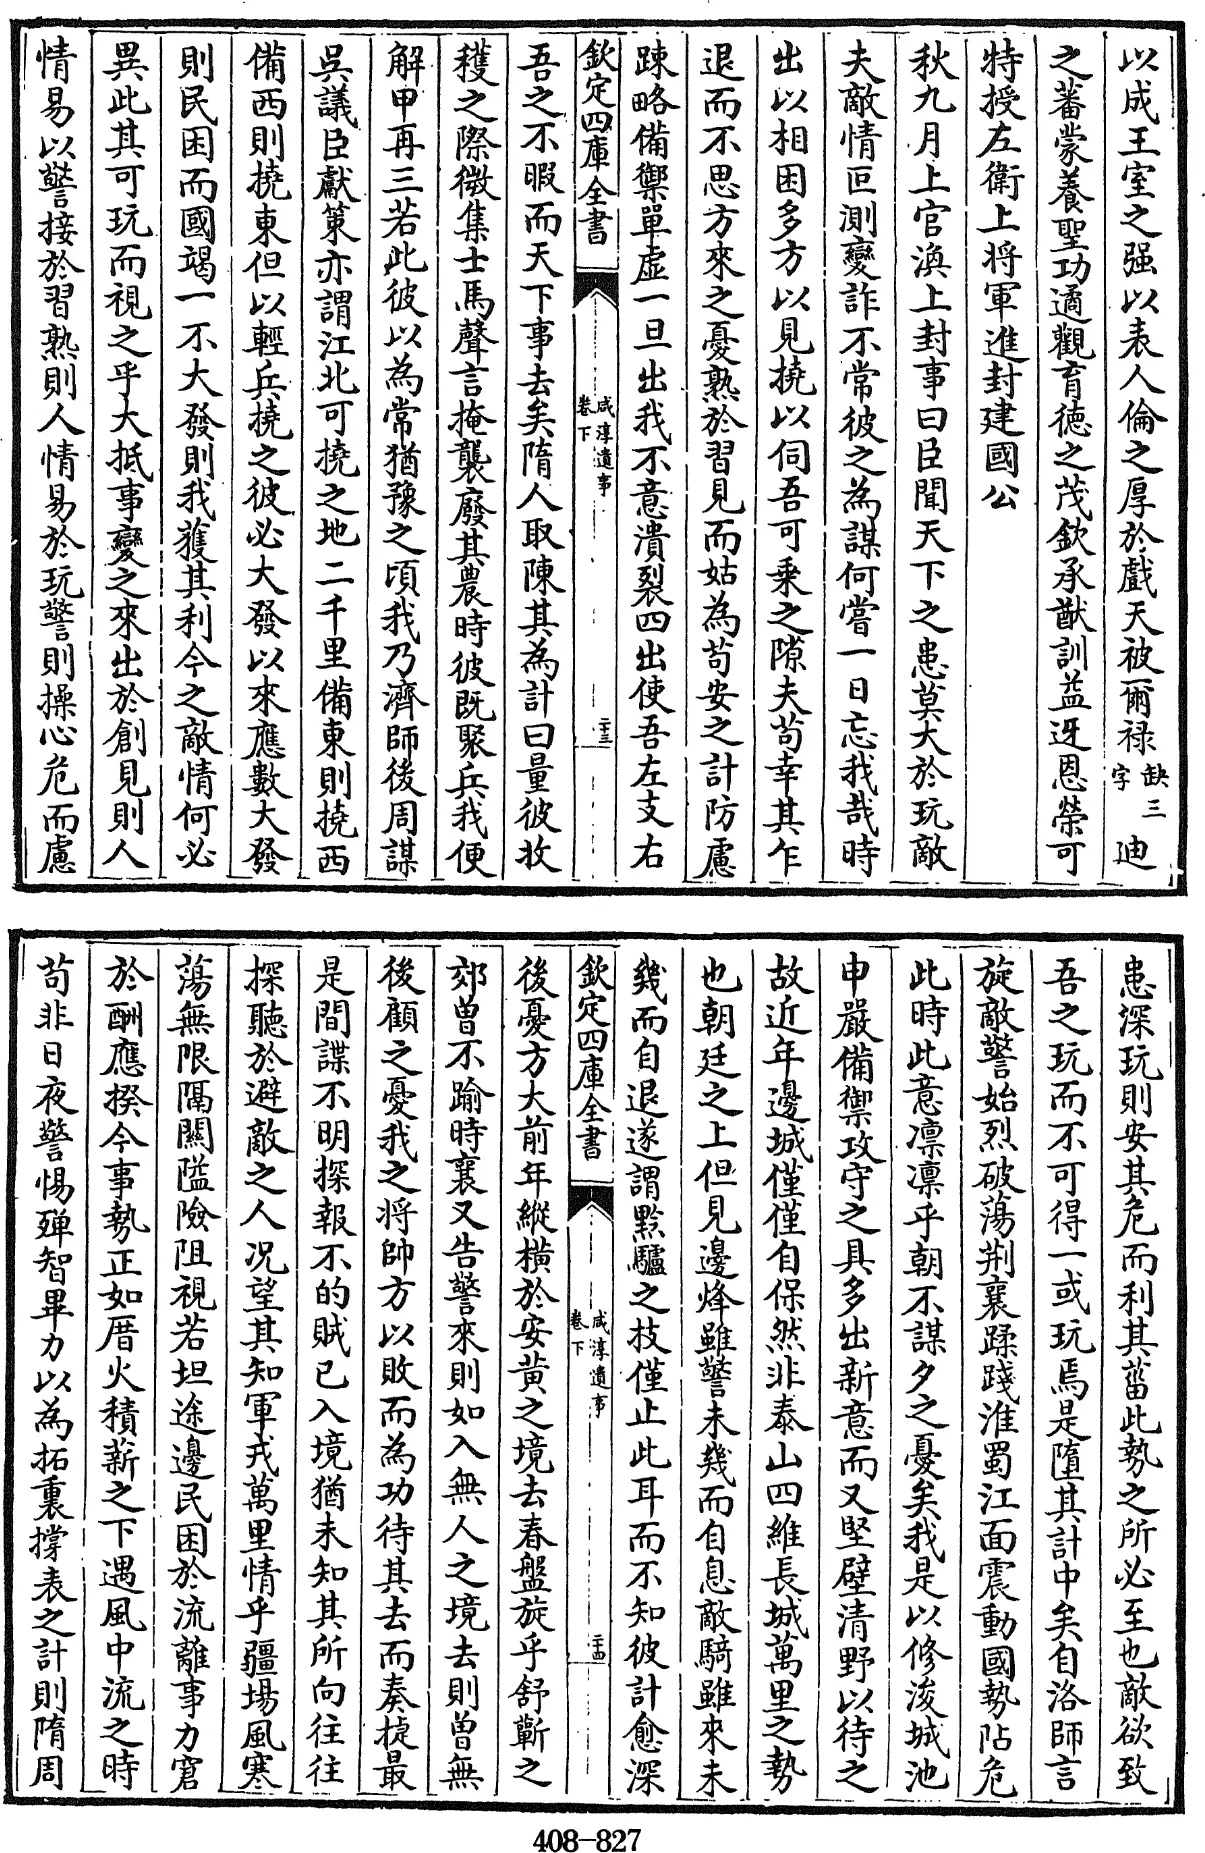 以成王室之强以表人倫之厚於戲天被爾禄缺三字迪
之蕃蒙養聖功遹觀育德之茂欽承猷訓益迓恩榮可
特授左衛上將軍進封建國公
秋九月上官渙上封事曰臣聞天下之患莫大於玩敵
夫敵情叵測變詐不常彼之為謀何嘗一日忘我哉時
出以相困多方以見撓以伺吾可乗之隙夫苟幸其乍
退而不思方來之憂熟於習見而姑為茍安之計防慮
踈略備禦單虚一旦出我不意潰裂四出使吾左支右
欽定四庫全書
咸淳遺事
卷下
二十三
吾之不暇而天下事去矣隋人取陳其為計曰量彼收
穫之際微集士馬聲言掩襲廢其農時彼既聚兵我便
解甲再三若此彼以為常猶豫之頃我乃濟師後周謀
呉議臣獻策亦謂江北可撓之地二千里備東則撓西
備西則撓東但以輕兵撓之彼必大發以來應數大發
則民困而國竭一不大發則我獲其利今之敵情何必
異此其可玩而視之乎大抵事變之來出於創見則人
情易以警接於習熟則人情易於玩警則操心危而慮
患深玩則安其危而利其菑此勢之所必至也敵欲致
吾之玩而不可得一或玩焉是墮其計中矣自洛師言
旋敵警始烈破蕩荆襄蹂踐淮蜀江面震動國勢阽危
此時此意凛凛乎朝不謀夕之憂矣我是以修浚城池
申嚴備禦攻守之具多出新意而又堅壁清野以待之
故近年邊城僅僅自保然非泰山四維長城萬里之勢
也朝廷之上但見邊烽雖警未幾而自息敵騎雖來未
幾而自退遂謂黔驢之技僅止此耳而不知彼計愈深
欽定四庫全書
咸淳遺事
卷下
二十四
後憂方大前年縱横於安黄之境去春盤旋乎舒蘄之
郊曽不踰時襄又告警來則如入無人之境去則曽無
後顧之憂我之將帥方以敗而為功待其去而奏捷最
是間諜不明探報不的賊已入境猶未知其所向往往
探聽於避敵之人况望其知軍戎萬里情乎疆場風寒
蕩無限隔關隘險阻視若坦途邊民困於流離事力窘
於酬應揆今事勢正如厝火積薪之下遇風中流之時
茍非日夜警惕殫智畢力以為拓裏撑表之計則隋周
408-827